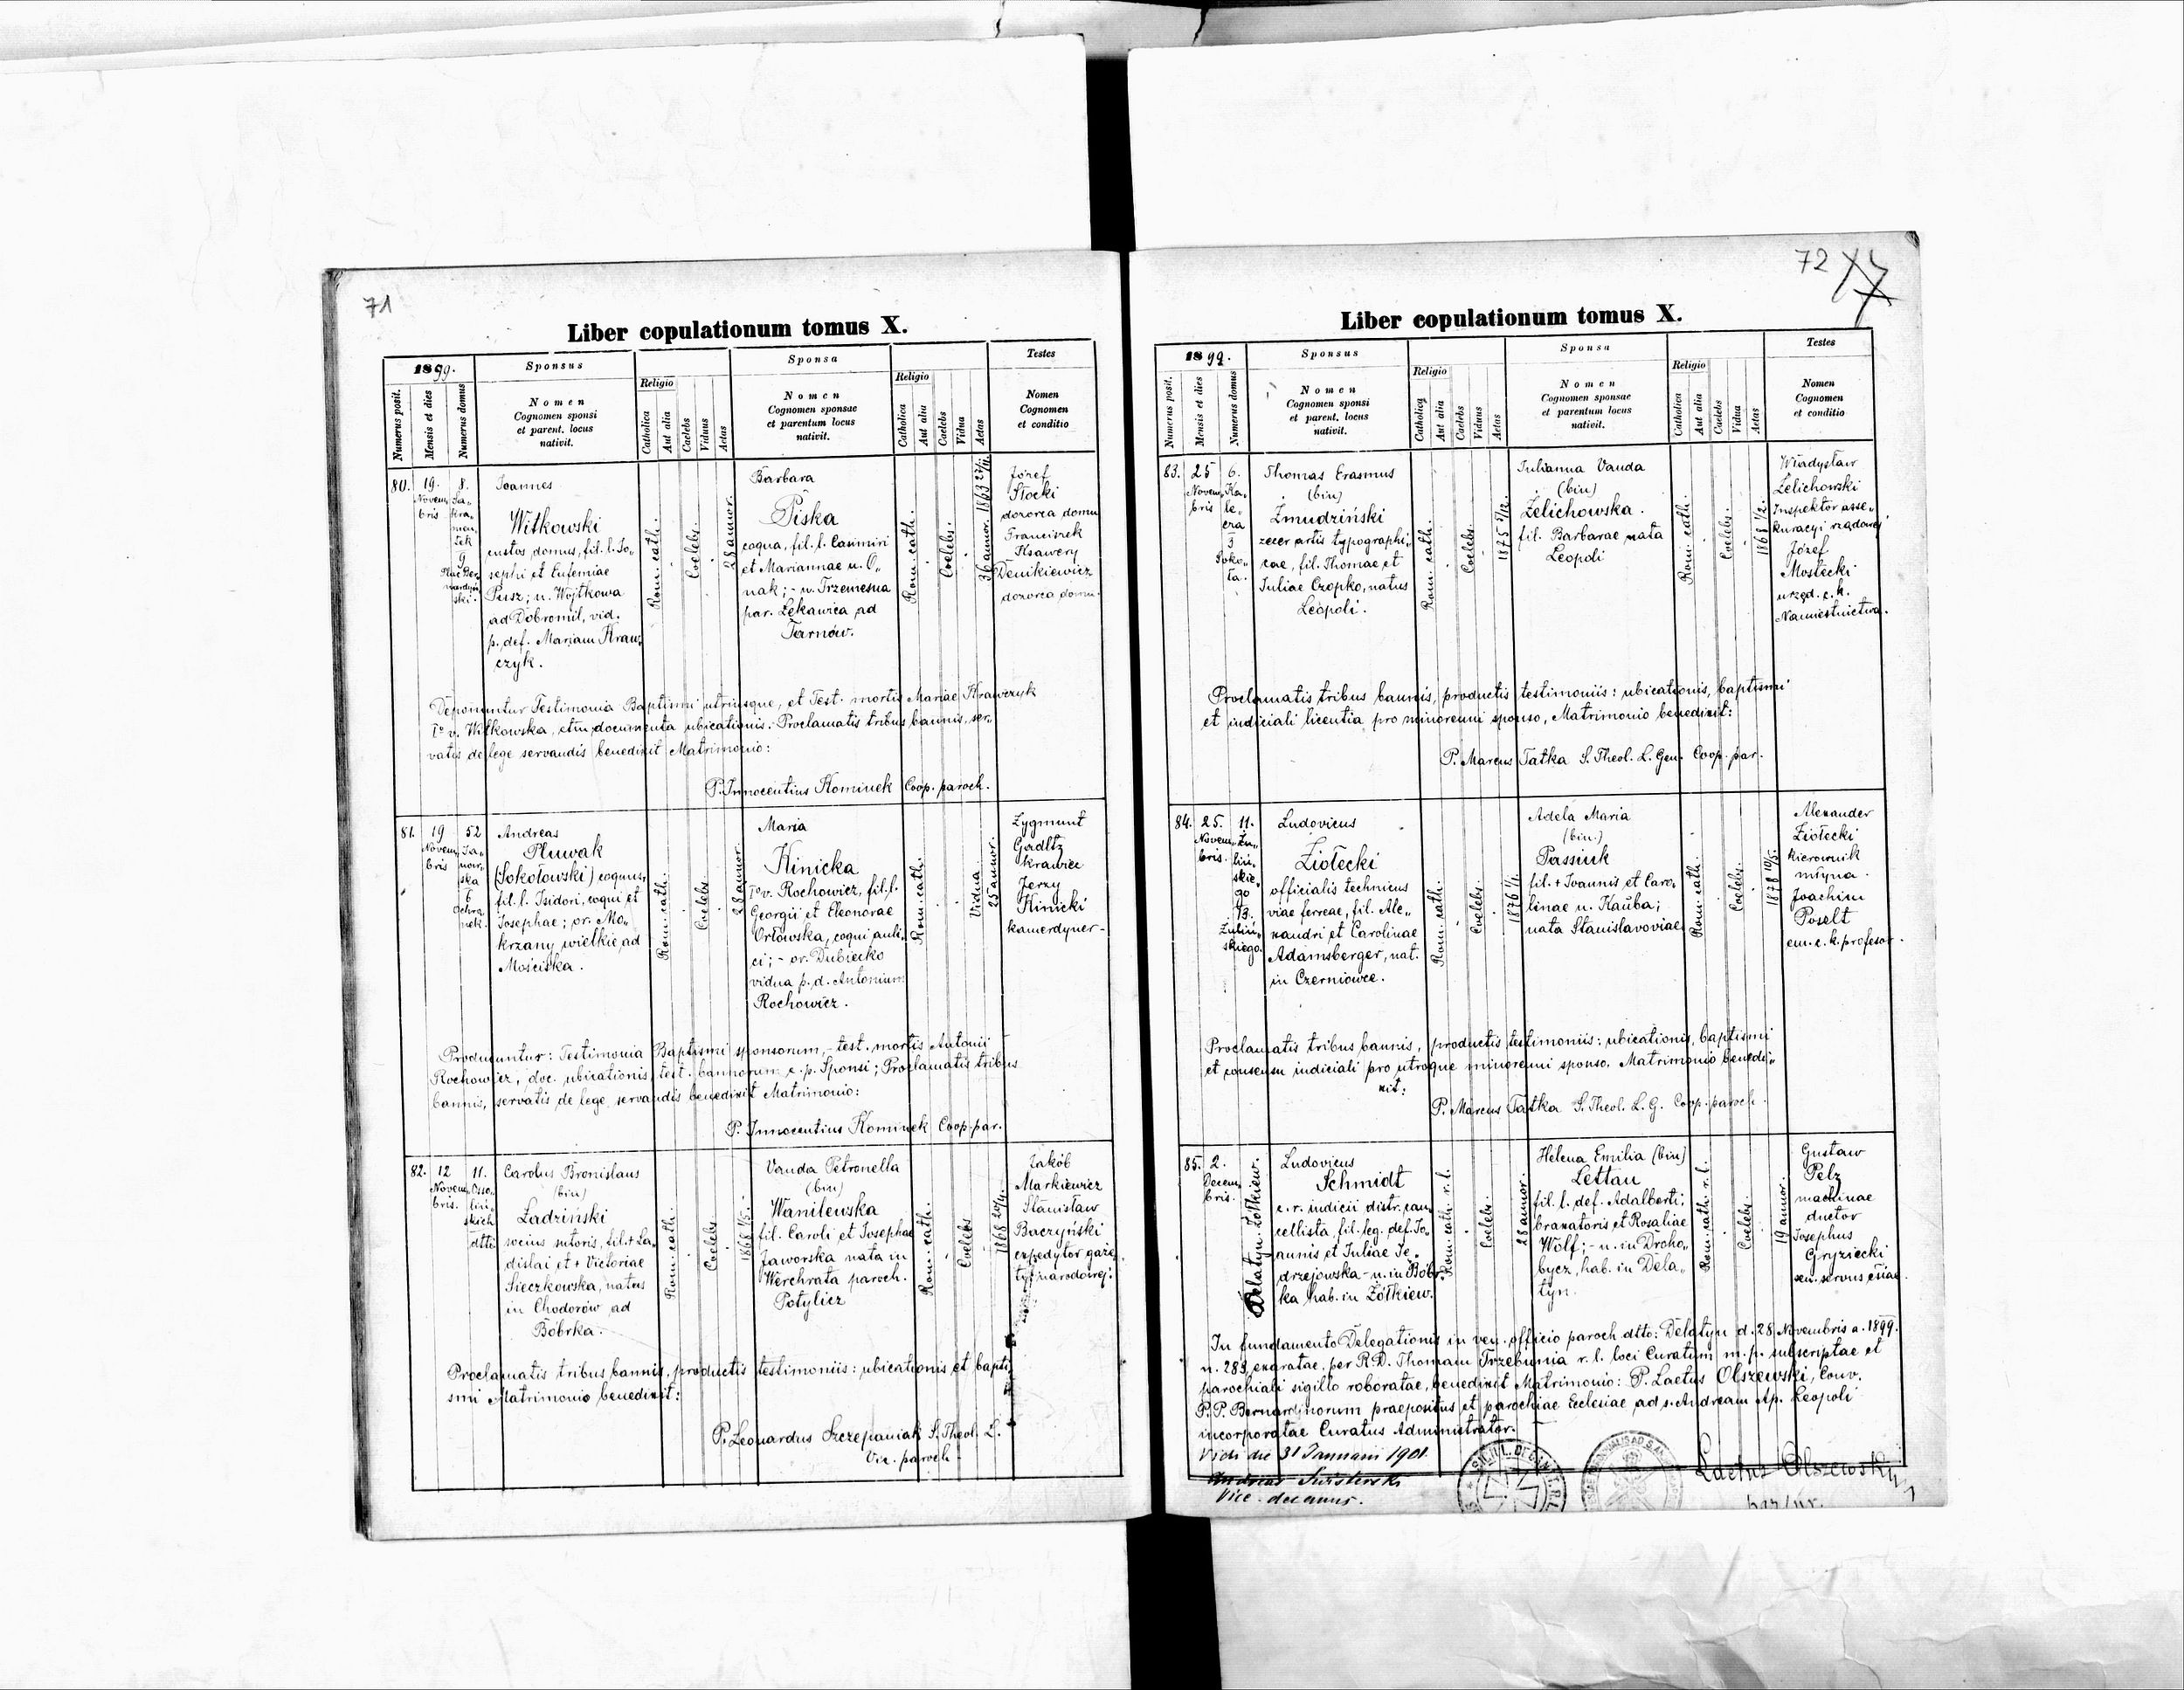 71
Liber copulationum tomus X.
1899.
Numerus posit.
Mensis et dies
Numerus domus
Sponsus
Nomen
Cognomen sponsi
et parent. locus
nativit.
Religio
Catholica
Aut alia
Caelebs
Viduus
Aetas
Sponsa
Nomen
Cognomen sponsae
et parentum locus
nativit.
Religio
Catholica
Aut alia
Caelebs
Vidua
Aetas
Testes
Nomen
Cognomen
et conditio
80.
19.
Novem„
bris
8.
Sa„
kra„
men„
tek
9
Plac Ber„
nardyń„
ski.
Joannes
Witkowski
custos domus, fil. l. Jo„
sephi et Eufemiae
Pusz; n. Wojtkowa
ad Dobromil, vid.
p. def. Mariam Kraw„
czyk.
Rom. cath.
Coelebs.
28 annor.
Barbara
Piska
coqua, fil. l. Casimiri
et Mariannae n. O„
nak; - n. Trzemesna
par. Łękawica ad
Tarnów.
Rom. cath.
Coelebs.
36 annor. 1863 27/11.
Józef
Stocki
dozorca domu
Franciszek
Ksawery
Denikiewicz
dozorca domu.
Deponuntur Testimonia Baptismi utriusque, et Test. mortis Mariae Krawczyk
Iº v. Witkowska, etiam documenta ubicationis. Proclamatis tribus bannis, ser„
vatis de lege servandis benedixit Matrimonio:
P. Innocentius Kominek Coop. paroch.
81.
19
Novem„
bris
52
Ja„
now„
ska
6
Ochro„
nek.
Andreas
Pluwak
(Sokołowski) coquus,
fil. l. Isidori, coqui et
Josephae; or. Mo„
krzany wielkie, ad
Mościska.
Rom. cath.
Coelebs.
28 annor.
Maria
Klinicka
Iº v. Rochowicz, fil. l.
Georgii et Eleonorae
Orłowska, coqui auli„
ci; - or. Dubiecko
vidua p. d. Antonium
Rochowicz.
Rom. cath.
Vidua.
25 annor.
Zygmunt
Gadltz
krawiec
Jerzy
Klinicki
kamerdyner-
Producuntur: Testimonia Baptismi sponsorum, - test. mortis Antonii
Rochowicz, doc. ubicationis, test. bannorum c. p. Sponsi; Proclamatis tribus
bannis, servatis de lege servandis benedixit Matrimonio:
P. Innocentius Kominek Coop. par.
82.
12
Novem„
bris.
11.
Osso„
liń„
skich
dtto
Carolus Bronislaus
(bin)
Ładziński
socius sutoris, fil. + La„
dislai et + Victoriae
Sieczkowska, natus
in Chodorów ad
Bóbrka.
Rom. cath.
Coelebs.
1868 1/5.
Vanda Petronella
(bin)
Wanilewska
fil. Caroli et Josephae
Jaworska nata in
Werchrata paroch.
Potylicz
Rom. cath.
Coelebs
1868 20/4.
Jakób
Markiewicz
Stanisław
Baczyński
expedytor gaze„
ty narodowej.
Proclamatis tribus bannis, productis testimoniis: ubicationis et bapti
smi Matrimonio benedixit:
P. Leonardus Szczepaniak S. Theol. L.
Vic. paroch
72
77
Liber copulationum tomus X.
1899.
Numerus posit.
Mensis et dies
Numerus domus
Sponsus
Nomen
Cognomen sponsi
et parent. locus
nativit.
Religio
Catholica
Aut alia
Caelebs
Viduus
Aetas
Sponsa
Nomen
Cognomen sponsae
et parentum locus
nativit.
Religio
Catholica
Aut alia
Caelebs
Vidua
Aetas
Testes
Nomen
Cognomen
et conditio
83.
25
Novem„
bris
6.
Ka„
le„
cza
5
Soko„
ła.
Thomas Erasmus
(bin)
Żmudziński
zecer artis typographi„
cae, fil. Thomae et
Juliae Czopko, natus
Leopoli.
Rom. cath.
Coelebs.
Julianna Vanda
(bin)
Żelichowska.
fil. Barbarae nata
Leopoli
Rom. cath.
Coelebs.
Władysław
Żelichowski
Inspektor asse„
kuracyi rządowej
Józef
Mostecki
urzęd. c. k.
Namiestnictwa.
Proclamatis tribus bannis, productis testimoniis: ubicationis, baptismi
et iudiciali licentia pro minorenni sponso, Matrimonio benedixit:
P. Marcus Tatka S. Theol. L. Gen. Coop. par.
84.
25.
Novem„
bris.
11.
Żu„
liń„
skie„
go
13.
Żuliń„
skiego.
Ludovicus
Ziołecki
officialis technicus
viae ferreae, fil. Ale„
xandri et Carolinae
Adamsberger, nat.
in Czerniowce.
Rom. cath.
Coelebs.
Adela Maria
(bin.)
Passiuk
fil. + Joannis et Caro„
linae n. Kauba;
nata Stanislavoviae
Rom. cath.
Coelebs.
1878 10/5.
Alexander
Ziołecki
kierownik
młyna.
Joachim
Poselt
em. c. k. profesor.
Proclamatis tribus bannis, productis testimoniis: ubicationis, baptismi
et consensu iudiciali pro utroque minorenni sponso, Matrimonio benedi„
xit:
P. Marcus Tatka S. Theol. L. G. Coop. paroch.
85.
2.
Decem„
bris.
Delatyn. Żółkiew.
Ludovicus
Schmidt
c. r. iudicii distr. can„
cellista, fil. leg. def. Jo„
annis et Juliae Ję„
drzejowska - n. in Bóbr„
ka hab. in Żółkiew.
Rom. cath. r. l.
Coelebs.
28 annor.
Helena Emilia (bin)
Lettau
fil. l. def. Adalberti;
branatoris et Rosaliae
Wolf; - n. in Droho„
bycz, hab. in Dela„
tyn.
Rom. cath. r. l.
Coelebs.
19 annor.
Gustaw
Pelz
machinae
ductor
Josephus
Gryziecki
In fundamento Delegationis in ven. officio paroch dtto: Delatyn d. 28 Novembris a. 1899.
n. 283 exaratae, per R. D. Thomam Trzebunia r. l. loci Curatum m. p. subscriptae et
parochiali sigillo roboratae, benedixit Matrimonio: P. Laetus Olszewski, Conv.
P. P. Bernardinorum praepositus et parochiae Ecclesiae ad s. Andream Ap. Leopoli
incorporatae Curatus Administrator.
Vidi die 31 Januarii 1901
Vice-decanus.
Laetus Olszewski